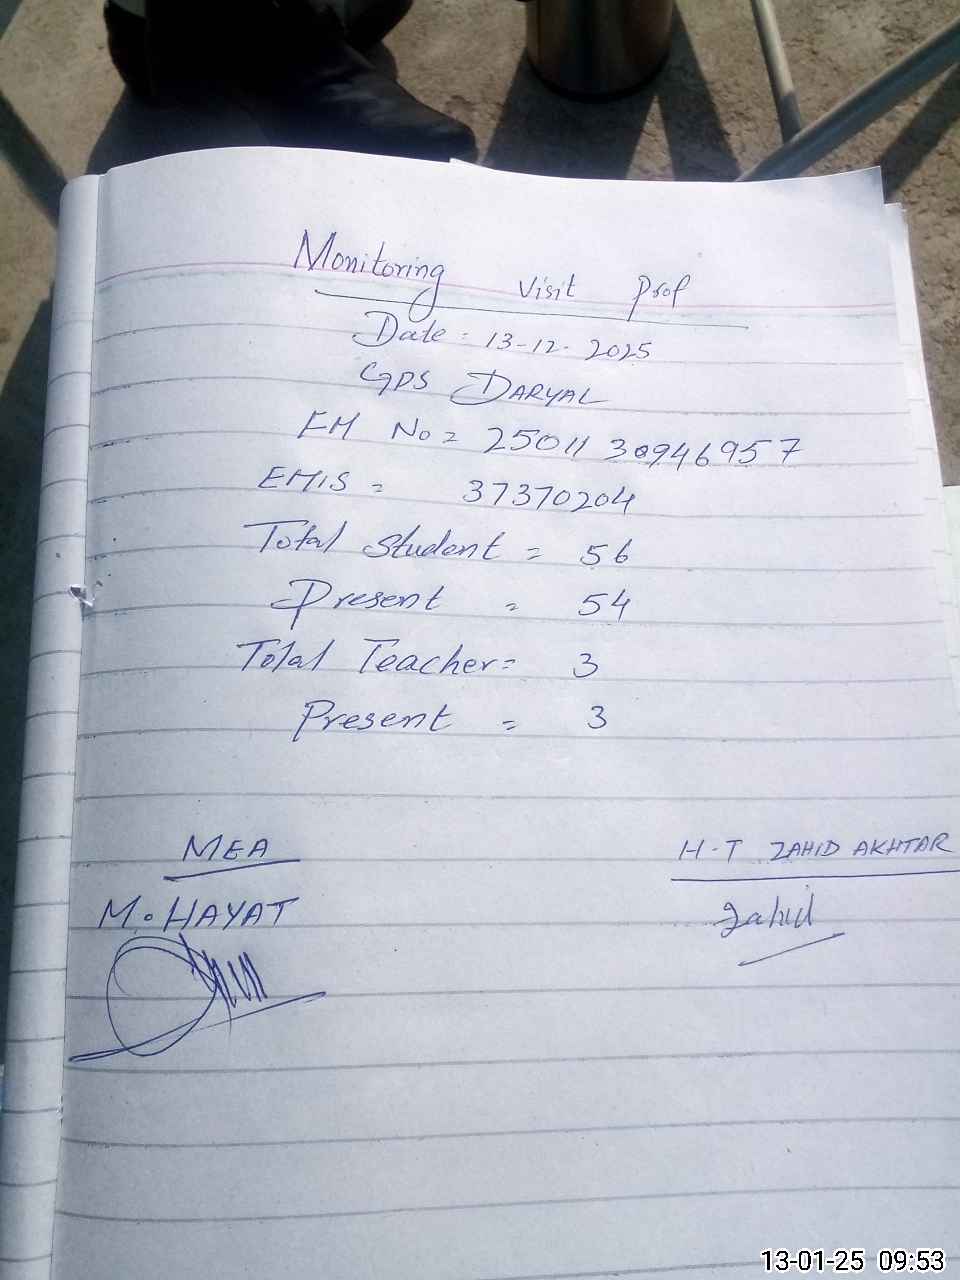 Monitoring Visit Prof
Date = 13-12-2025
GPS DARYAL
EM No = 25011 30946957
EMIS = 37370204
Total Student = 56
Present = 54
Total Teacher = 3
Present = 3
MEA
H.T ZAHID AKHTAR
M. HAYAT
Zahid
13-01-25 09:53